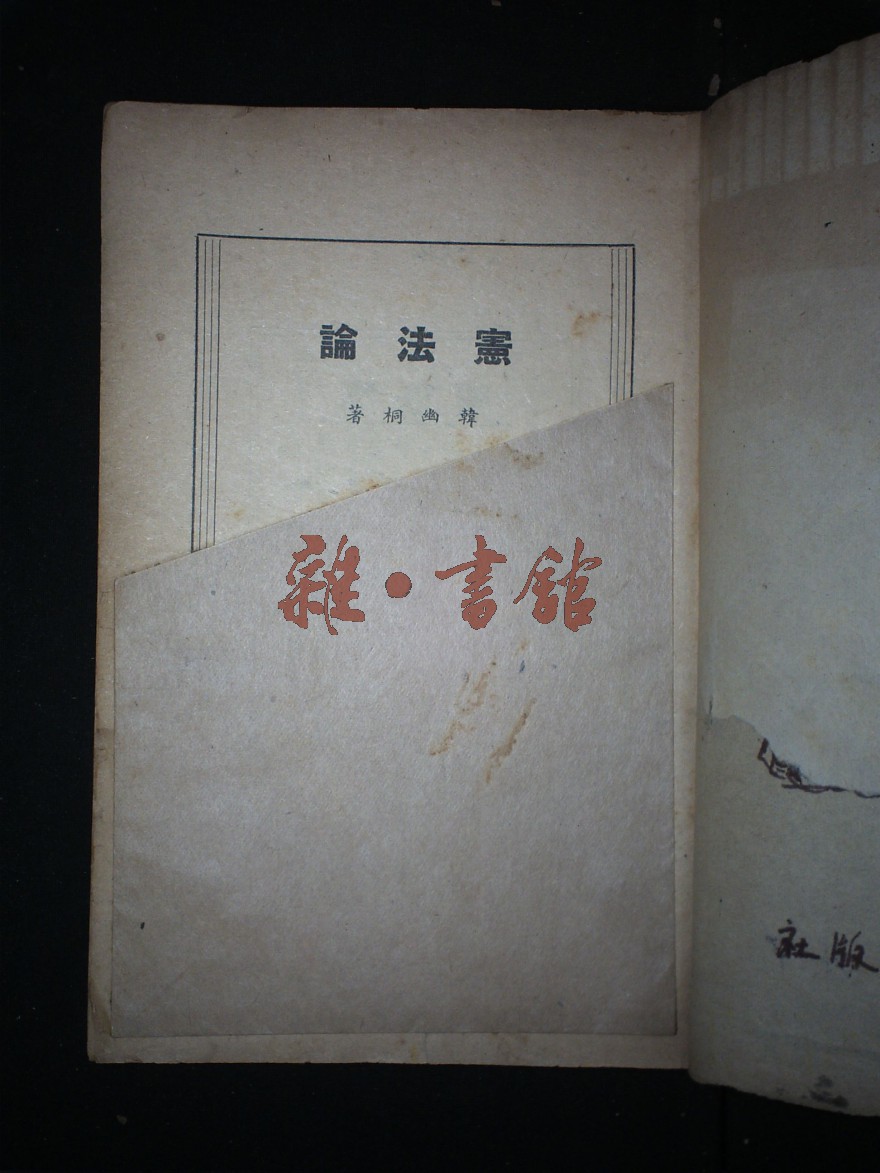 憲法論
韓幽桐著
雜·書館
版社